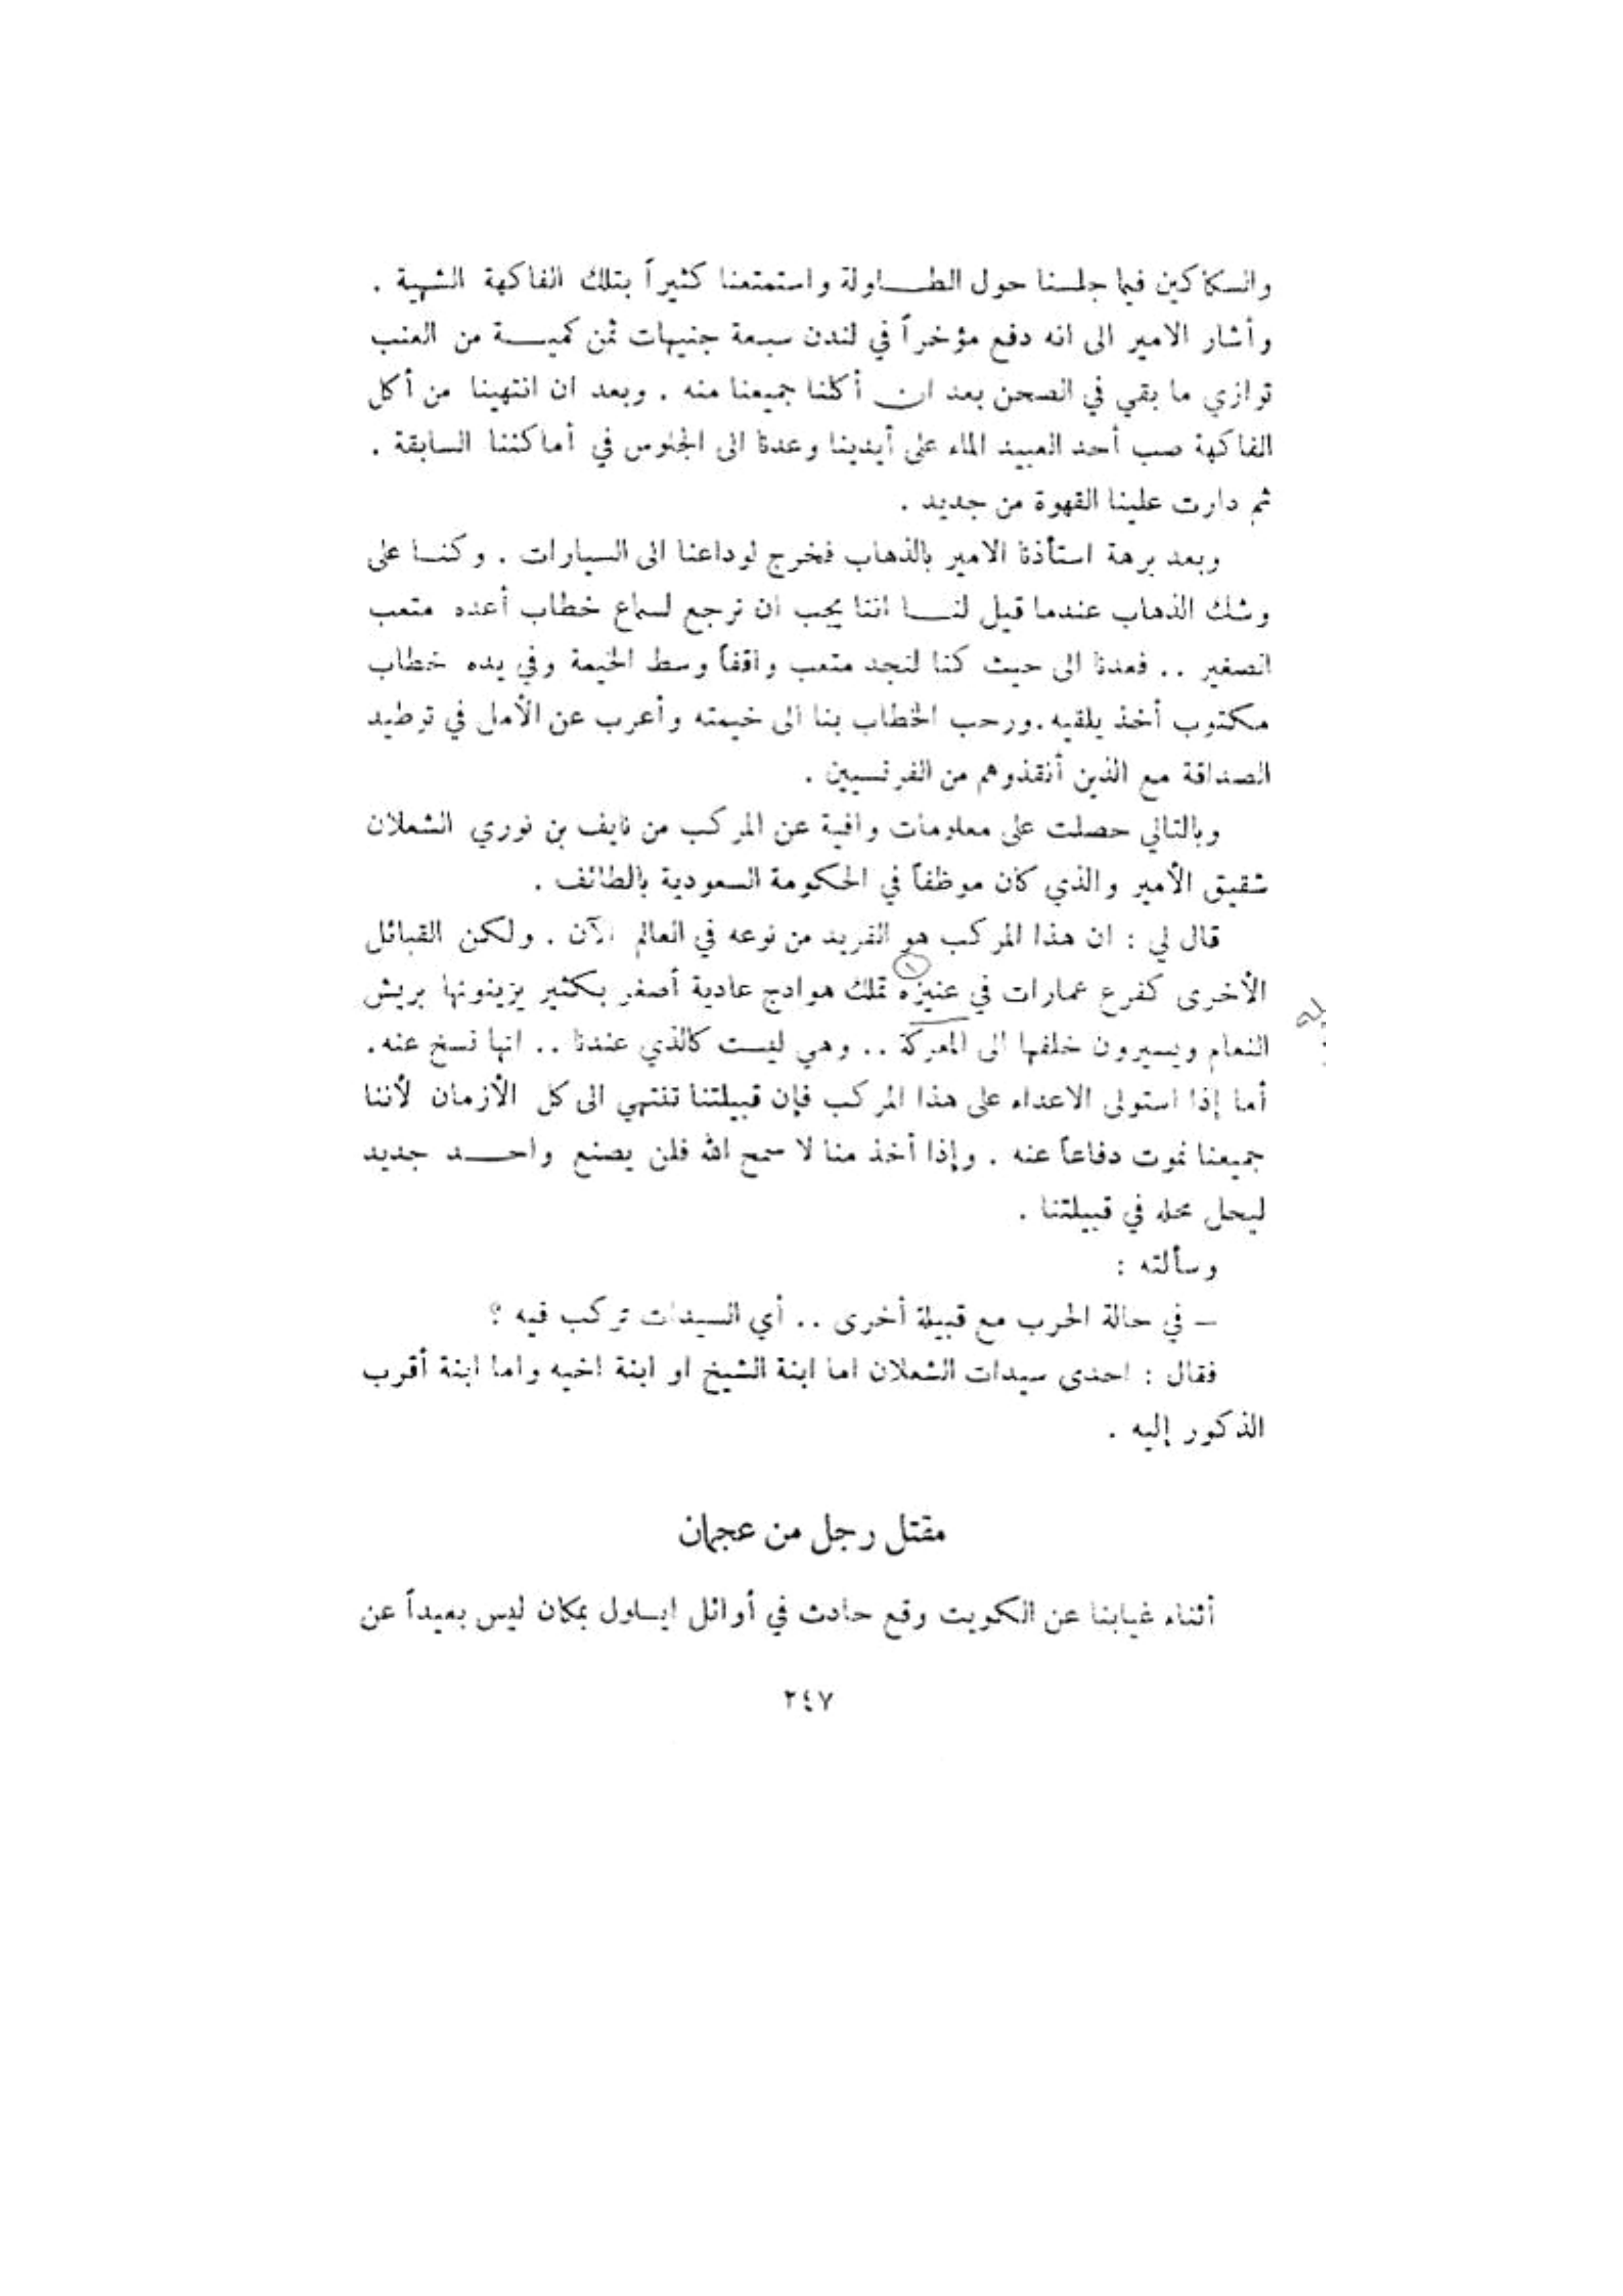 والسكاكين فيما جلسنا حول الطاولة واستمتعنا كثيراً بتلك الفاكهة الشهية .
وأشار الامير الى انه دفع مؤخراً في لندن سبعة جنيهات ثمن كمية من العنب
توازي ما بقي في الصحن بعد ان أكلنا جميعنا منه . وبعد ان انتهينا من أكل
الفاكهة صب أحد العبيد الماء على أيدينا وعدنا الى الجلوس في أماكننا السابقة .
ثم دارت علينا القهوة من جديد .
وبعد برهة استأذنا الامير بالذهاب فخرج لوداعنا الى السيارات . وكنا على
وشك الذهاب عندما قيل لنا اننا يجب ان نرجع لسماع خطاب أعده متعب
الصغير .. فعدنا الى حيث كنا لنجد متعب واقفاً وسط الخيمة وفي يده خطاب
مكتوب أخذ يلقيه . ورحب الخطاب بنا الى خيمته وأعرب عن الأمل في توطيد
الصداقة مع الذين أنقذوهم من الفرنسيين .
وبالتالي حصلت على معلومات وافية عن المركب من نايف بن نوري الشعلان
شقيق الأمير والذي كان موظفاً في الحكومة السعودية بالطائف .
قال لي : ان هذا المركب هو الفريد من نوعه في العالم الآن . ولكن القبائل
الأخرى كفرع عمارات في عنيزه (١) تملك هوادج عادية أصغر بكثير يزينونها بريش
النعام ويسيرون خلفها الى المعركة .. وهي ليست كالذي عندنا .. انها نسخ عنه .
أما إذا استولى الاعداء على هذا المركب فإن قبيلتنا تنتهي الى كل الأزمان لأننا
جميعنا نموت دفاعاً عنه . وإذا أخذ منا لا سمح الله فلن يصنع واحد جديد
ليحل محله في قبيلتنا .
وسألته :
– في حالة الحرب مع قبيلة أخرى .. أي السيدات تركب فيه ؟
فقال : احدى سيدات الشعلان اما ابنة الشيخ او ابنة اخيه واما ابنة أقرب
الذكور إليه .
مقتل رجل من عجمان
أثناء غيابنا عن الكويت وقع حادث في أوائل ايلول بمكان ليس بعيداً عن
٢٤٧